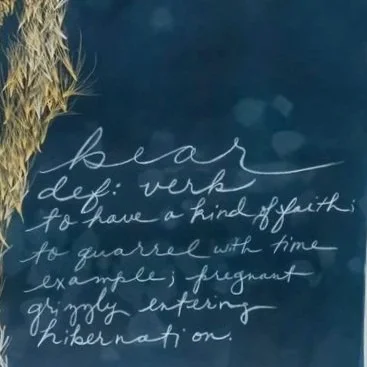 bear
def: verb
to have a kind of faith;
to quarrel with time
example; pregnant
grizzly entering
hibernation.